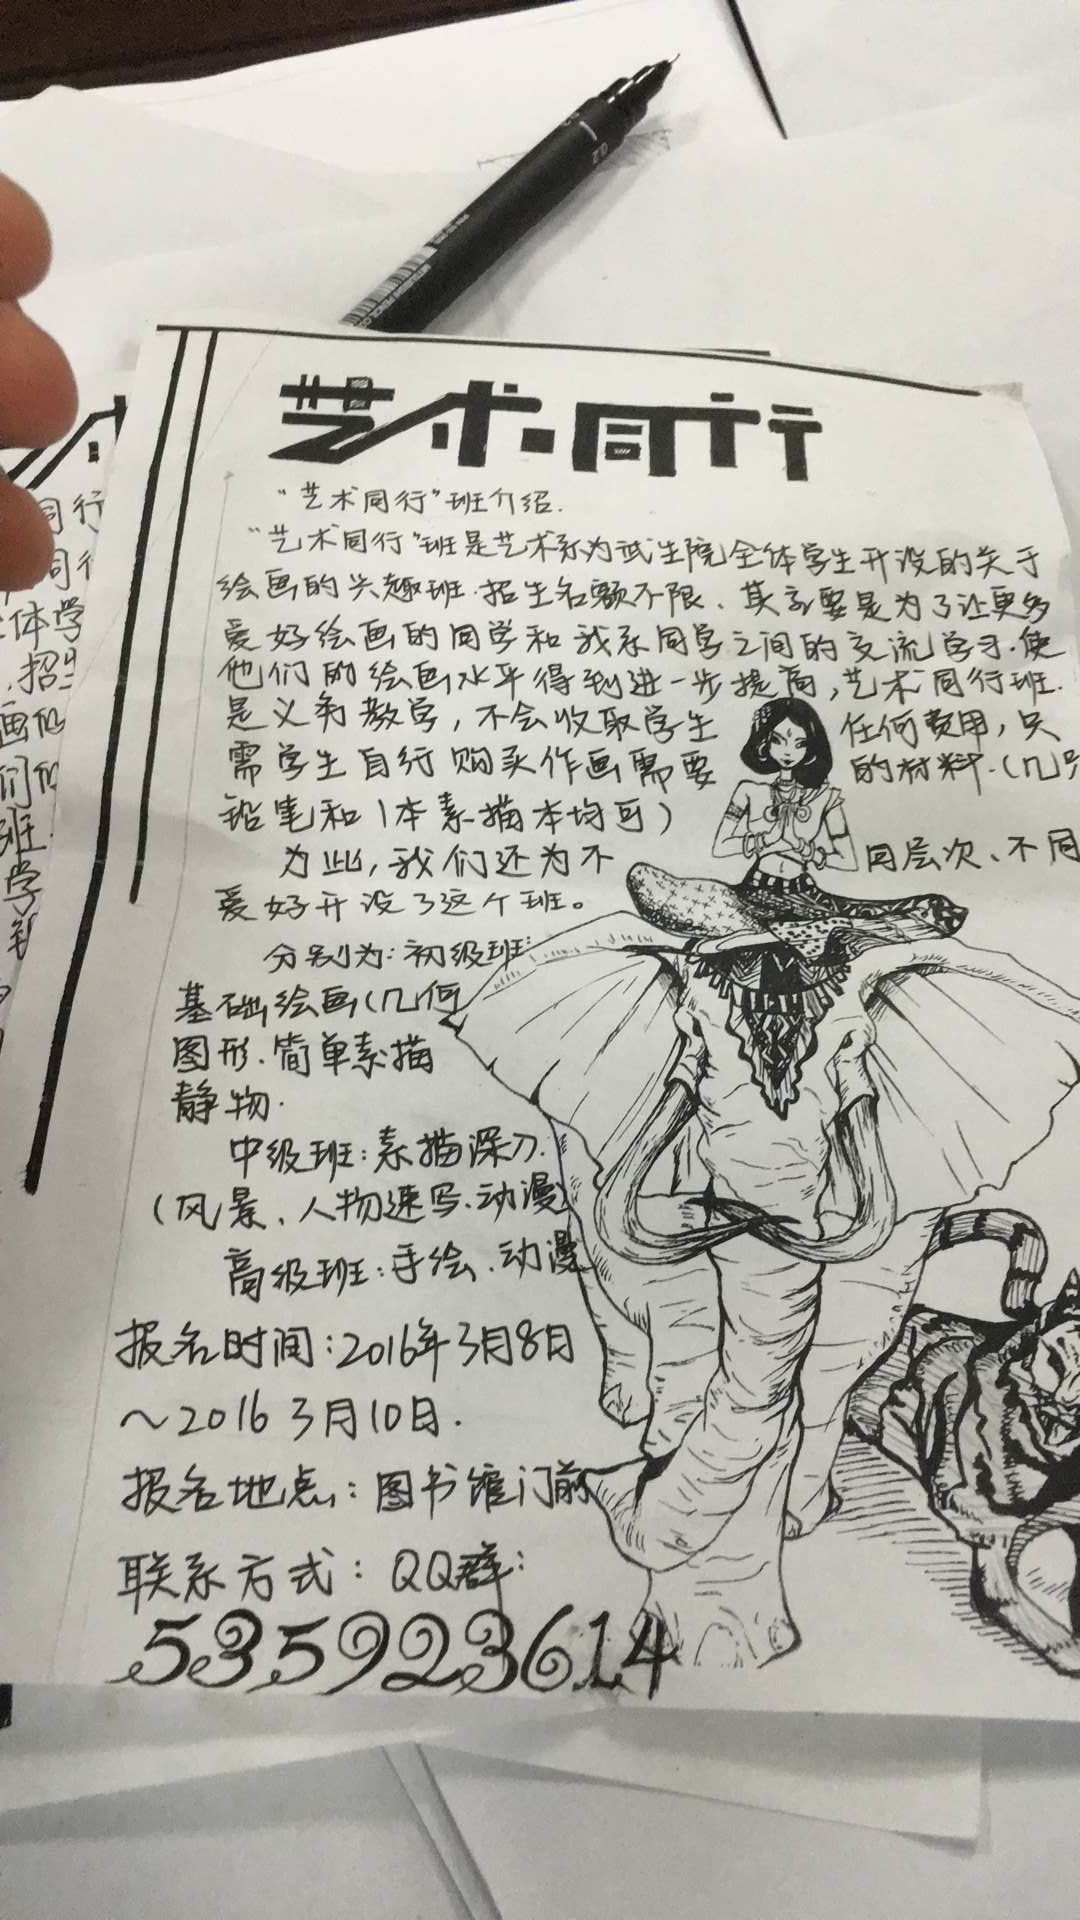 艺术同行
“艺术同行”班介绍.
“艺术同行”班是艺术系为武生院全体学生开设的关于
绘画的兴趣班.招生名额不限、其主要是为了让更多
爱好绘画的同学和我系同学之间的交流学习.使
他们的绘画水平得到进一步提高,艺术同行班.
是义务教学,不会收取学生任何费用,只
需学生自行购买作画需要的材料.(几只
铅笔和1本素描本均可)
为此,我们还为不同层次、不同
爱好开设了这个班。
分别为:初级班:
基础绘画(几何
图形.简单素描
静物.
中级班:素描深入.
(风景、人物速写.动漫)
高级班:手绘.动漫
报名时间:2016年3月8日
～2016 3月10日.
报名地点:图书馆门前
联系方式:QQ群:
535923614